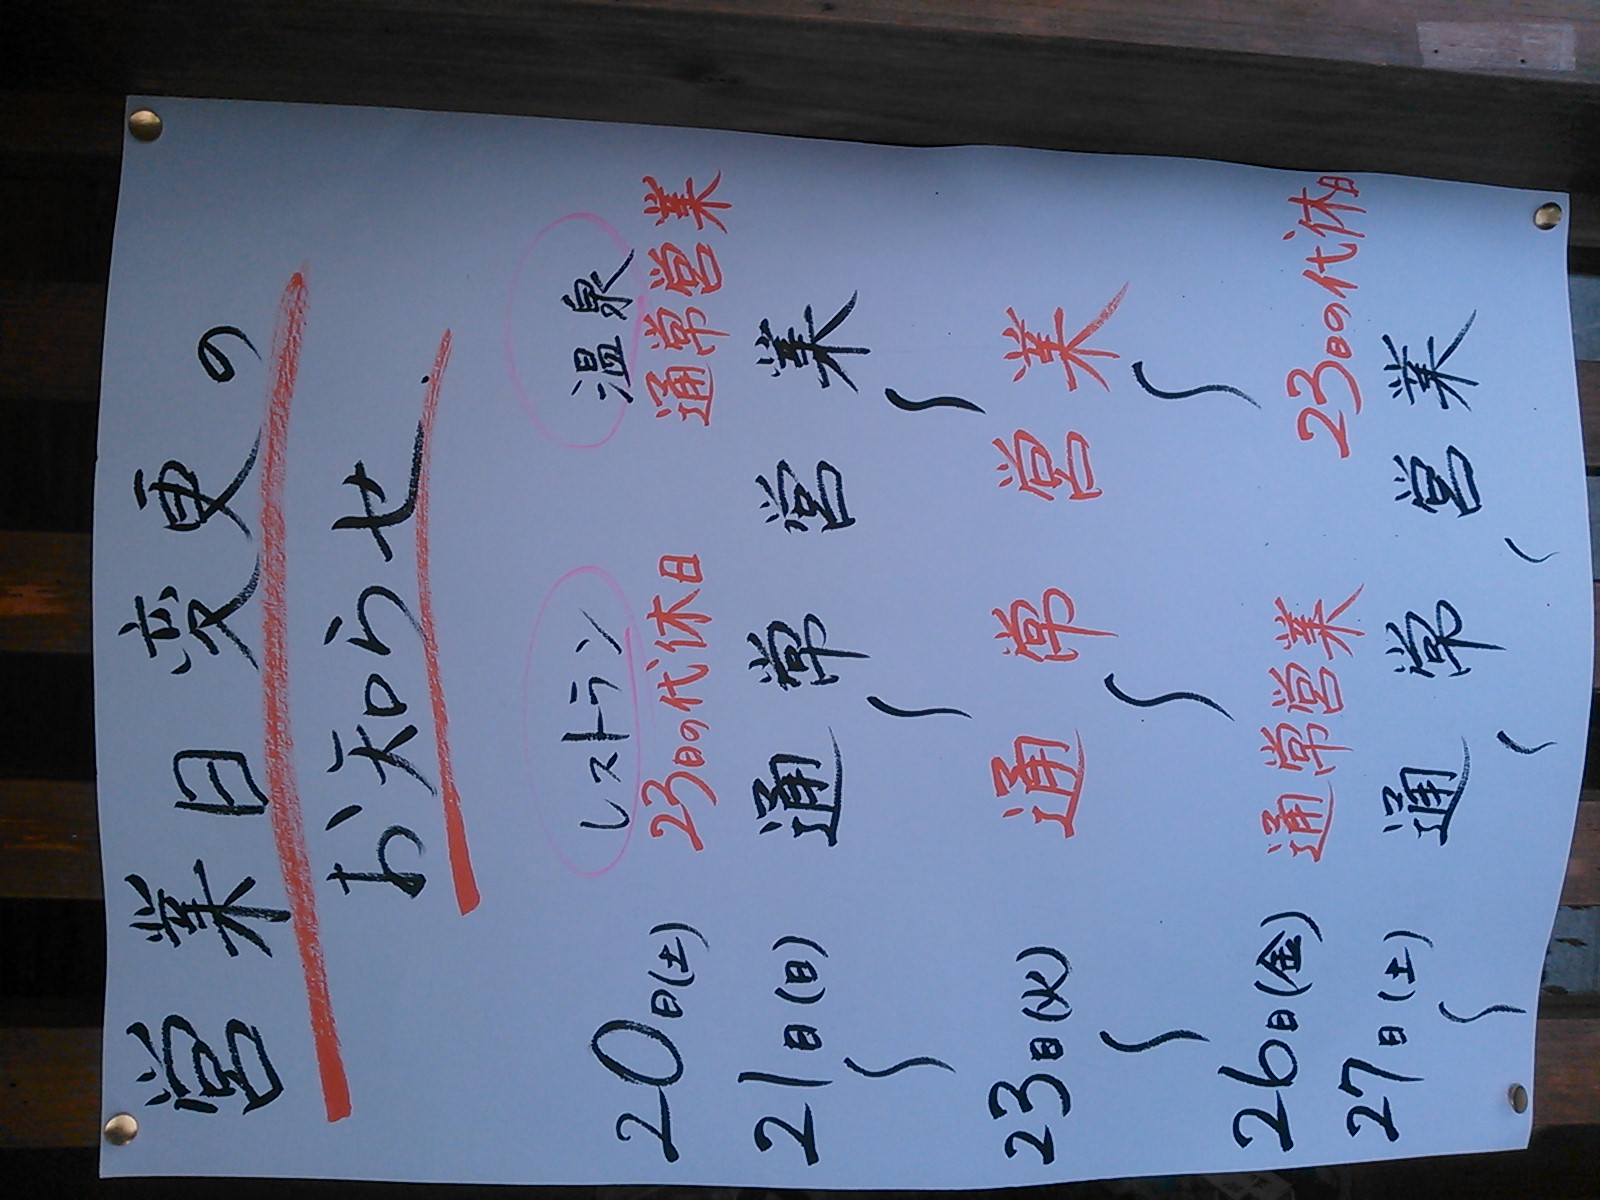 営業日変更の
お知らせ.
レストラン 温泉
20日(土) 23日の代休日 通常営業
21日(日) 通常営業
〜 〜 〜
23日(火) 通常営業
〜 〜 〜
26日(金) 通常営業 23日の代休日
27日(土) 通常営業
〜 〜 〜